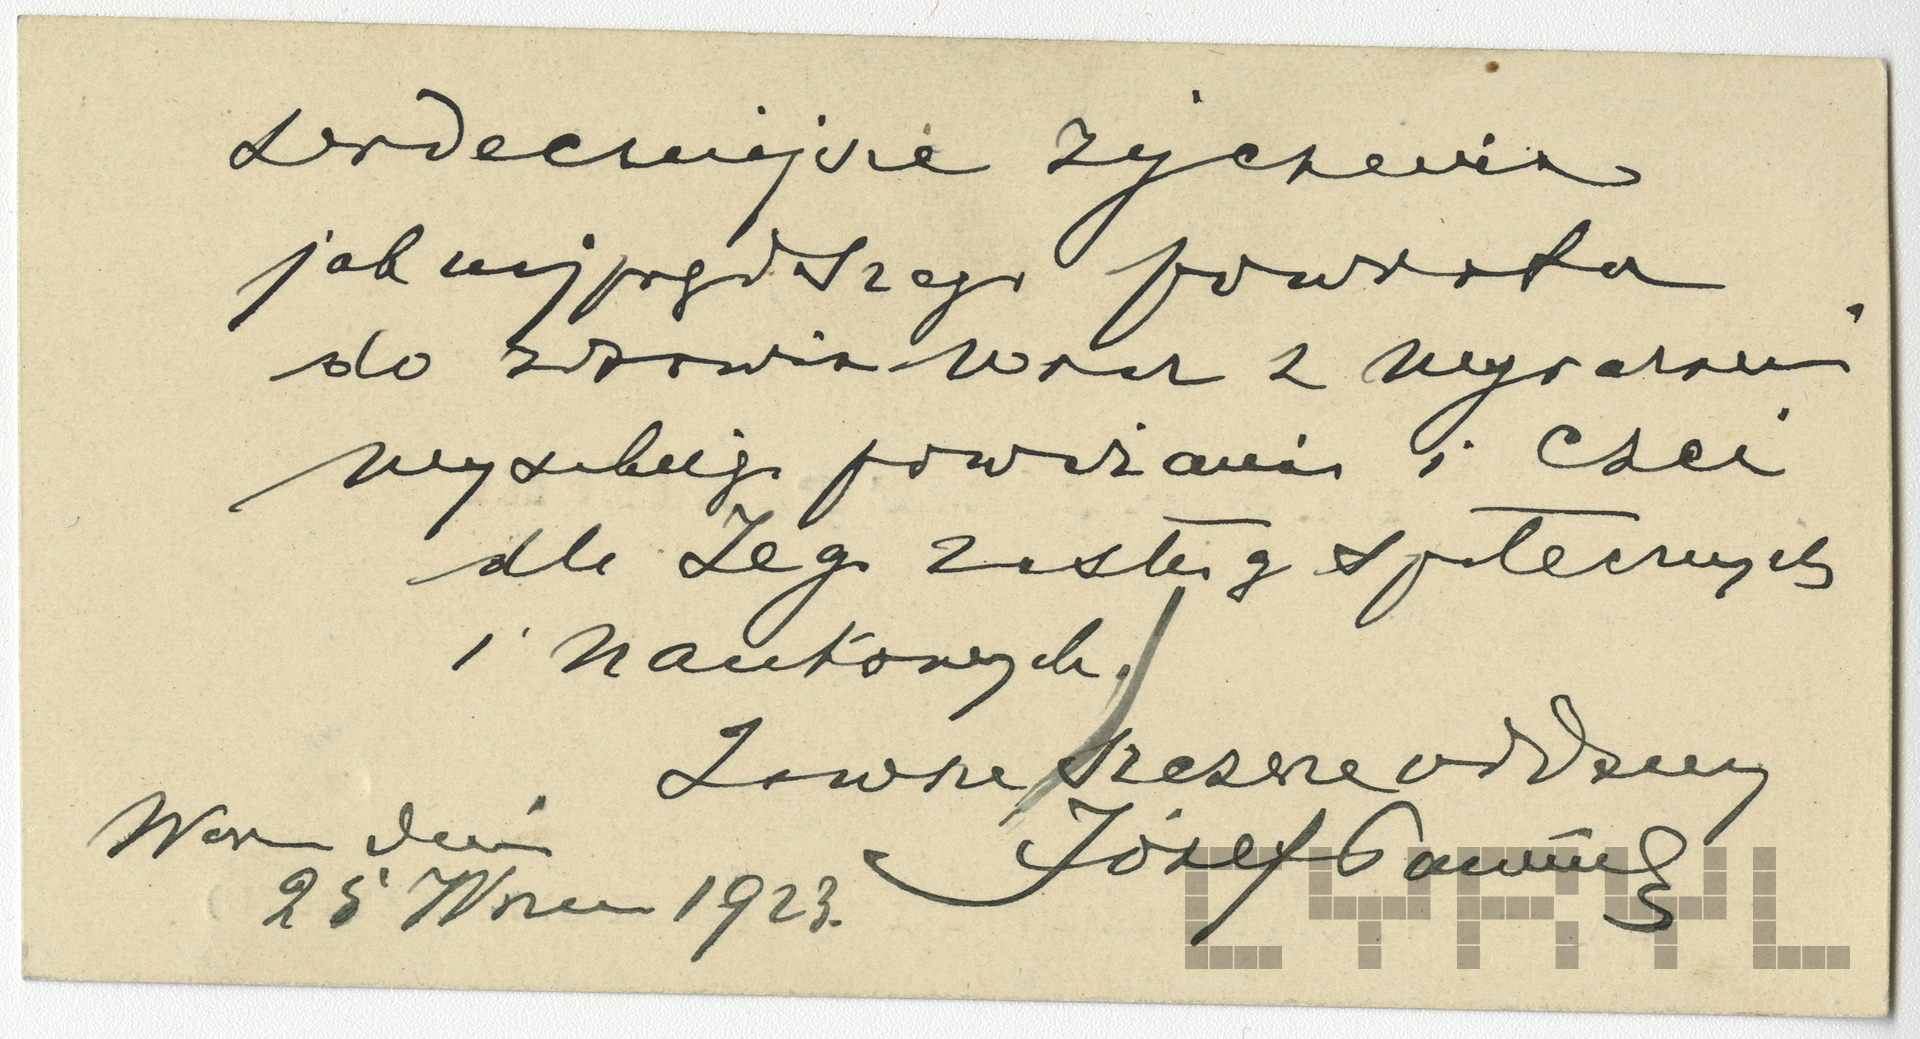 serdeczniejsze życzenia
jaknajprędszego powrotu
do zdrowia wraz z wyrazami
wysokiego poważania i czci
dla Jego zasług społecznych
i naukowych.
Zawsze szczerze oddany
Józef
Warsz dnia
25 Wrzes 1923.
CYRYL